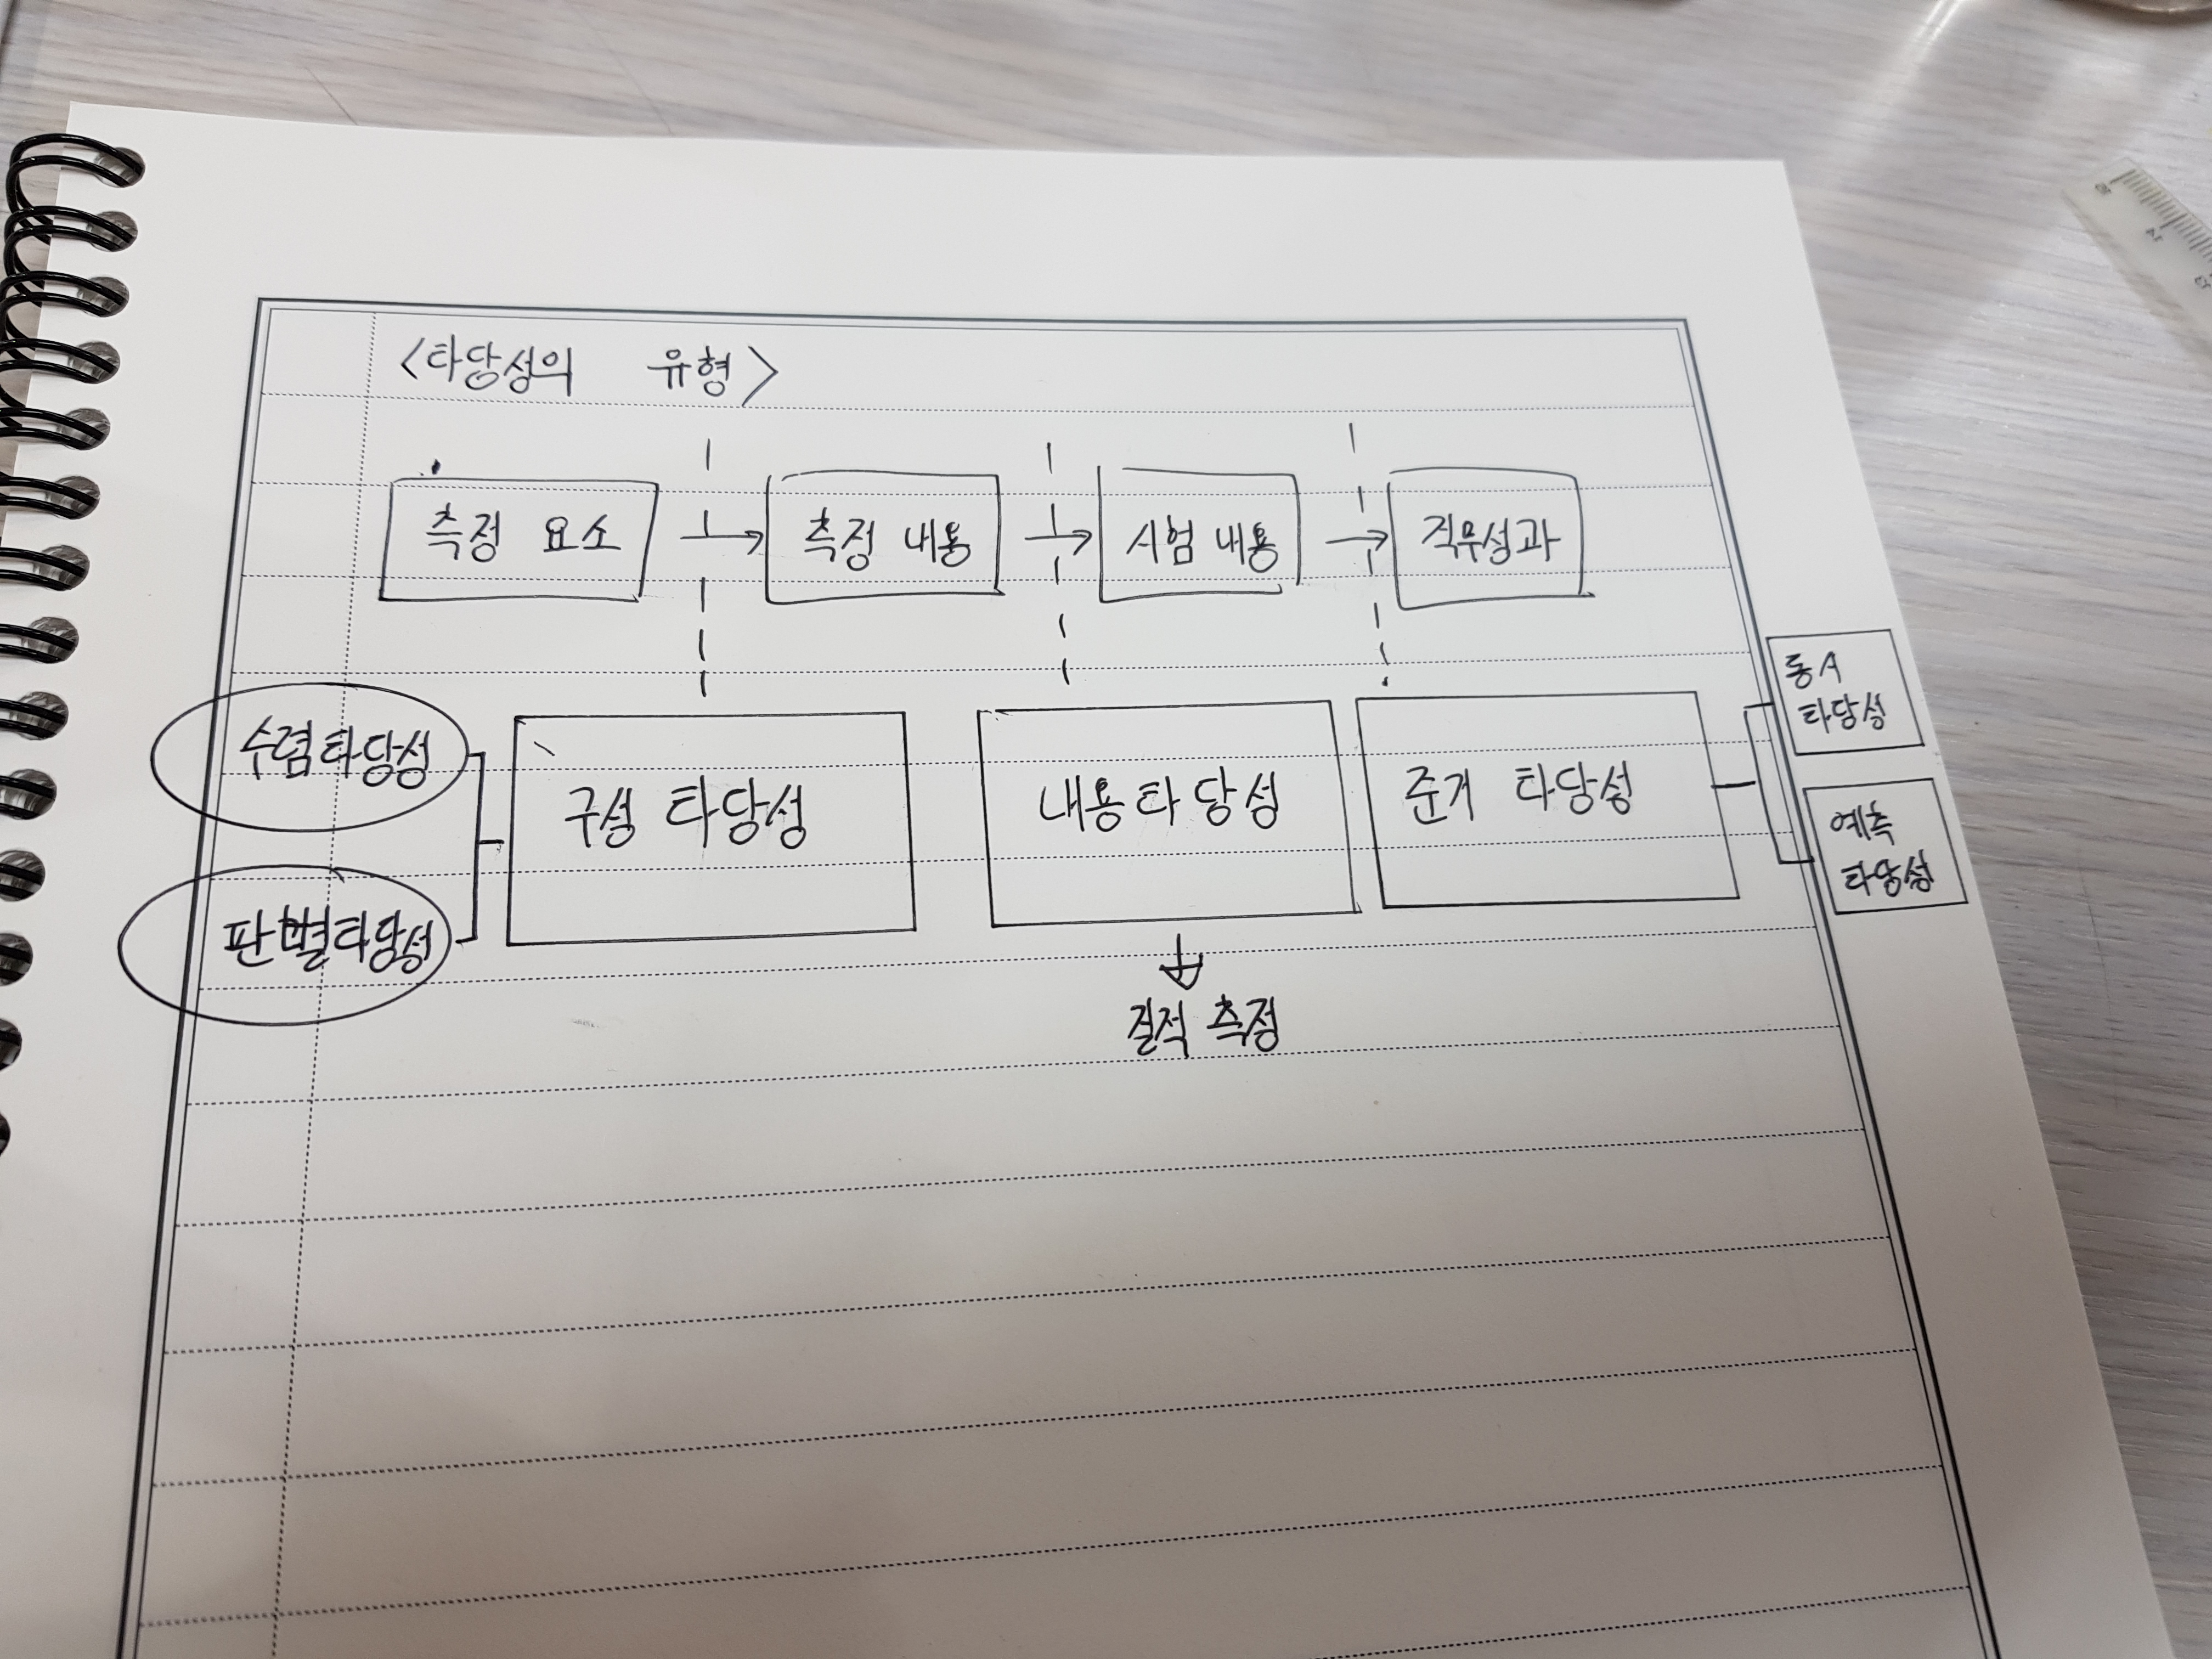 <타당성의 유형>
측정 요소 → 측정 내용 → 시험 내용 → 직무성과
동시
타당성
수렴타당성
구성 타당성
내용타당성
준거 타당성
예측
타당성
판별타당성
질적 측정